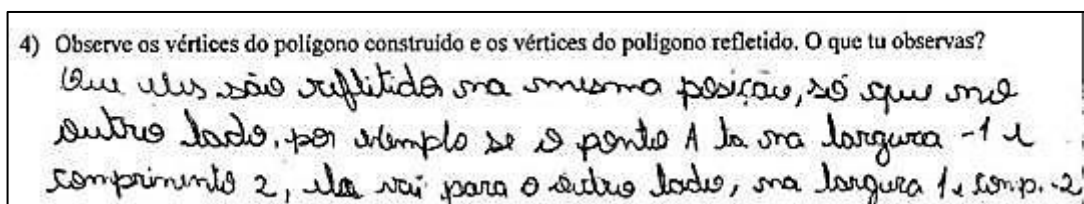 4) Observe os vértices do polígono construído e os vértices do polígono refletido. O que tu observas?
Que eles são refletidos na mesma posição, só que no
outro lado, por exemplo se o ponto A ta na largura -1 e
comprimento 2, ela vai para o outro lado, na largura 1 e comp. -2